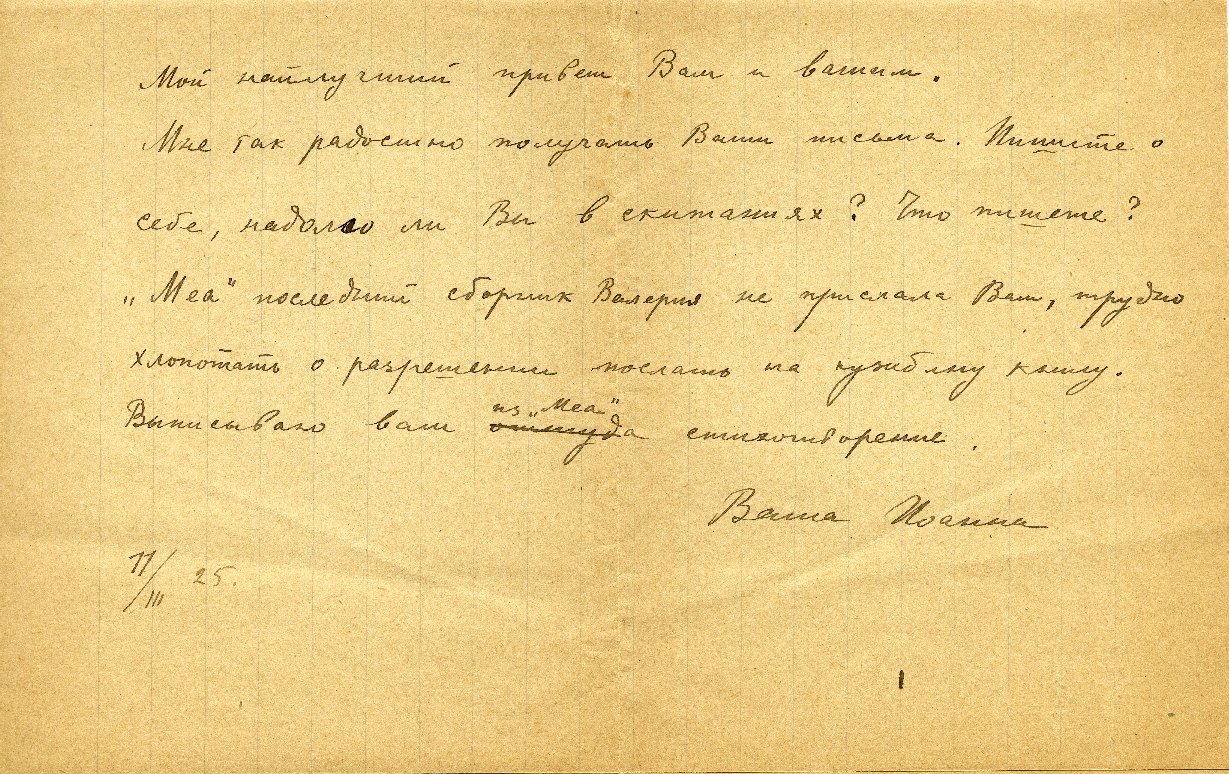 Мой наилучший привет Вам и вашим.
Мне так радостно получать Ваши письма. Пишите о
себе, надолго ли Вы в скитаниях? Что пишете?
„Меа" последний сборник Валерия не прислала Вам, трудно
хлопотать о разрешении послать на чужбину книгу.
из „Меа"
Выписываю вам оттуда стихотворение.
Ваша Иоанна
11/III 25.
1